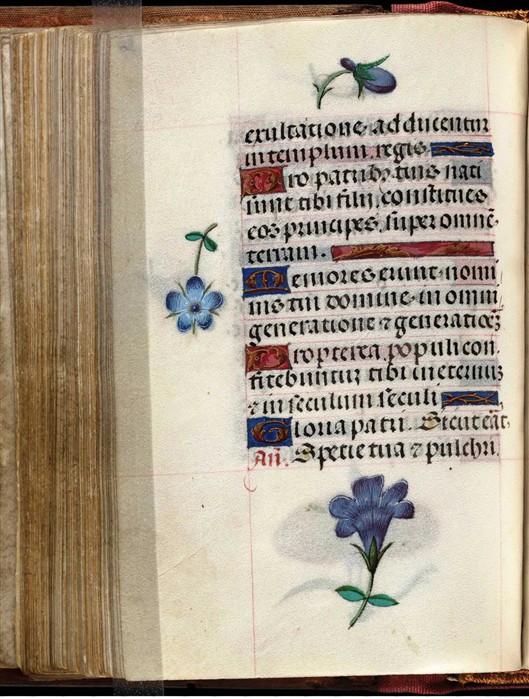 exultatione, adducentur
in templum regis.
Pro patribꝰ tuis nati
sunt tibi filii, constitues
eos principes, super omnē
terram.
Memores erunt nomi
nis tui domine, in omni
generatione ⁊ generationē
Propterea populi con
fitebuntur tibi in eternuz
⁊ in seculum seculi
Gloria patri. Sicut erat.
An̄. Specie tua ⁊ pulchri